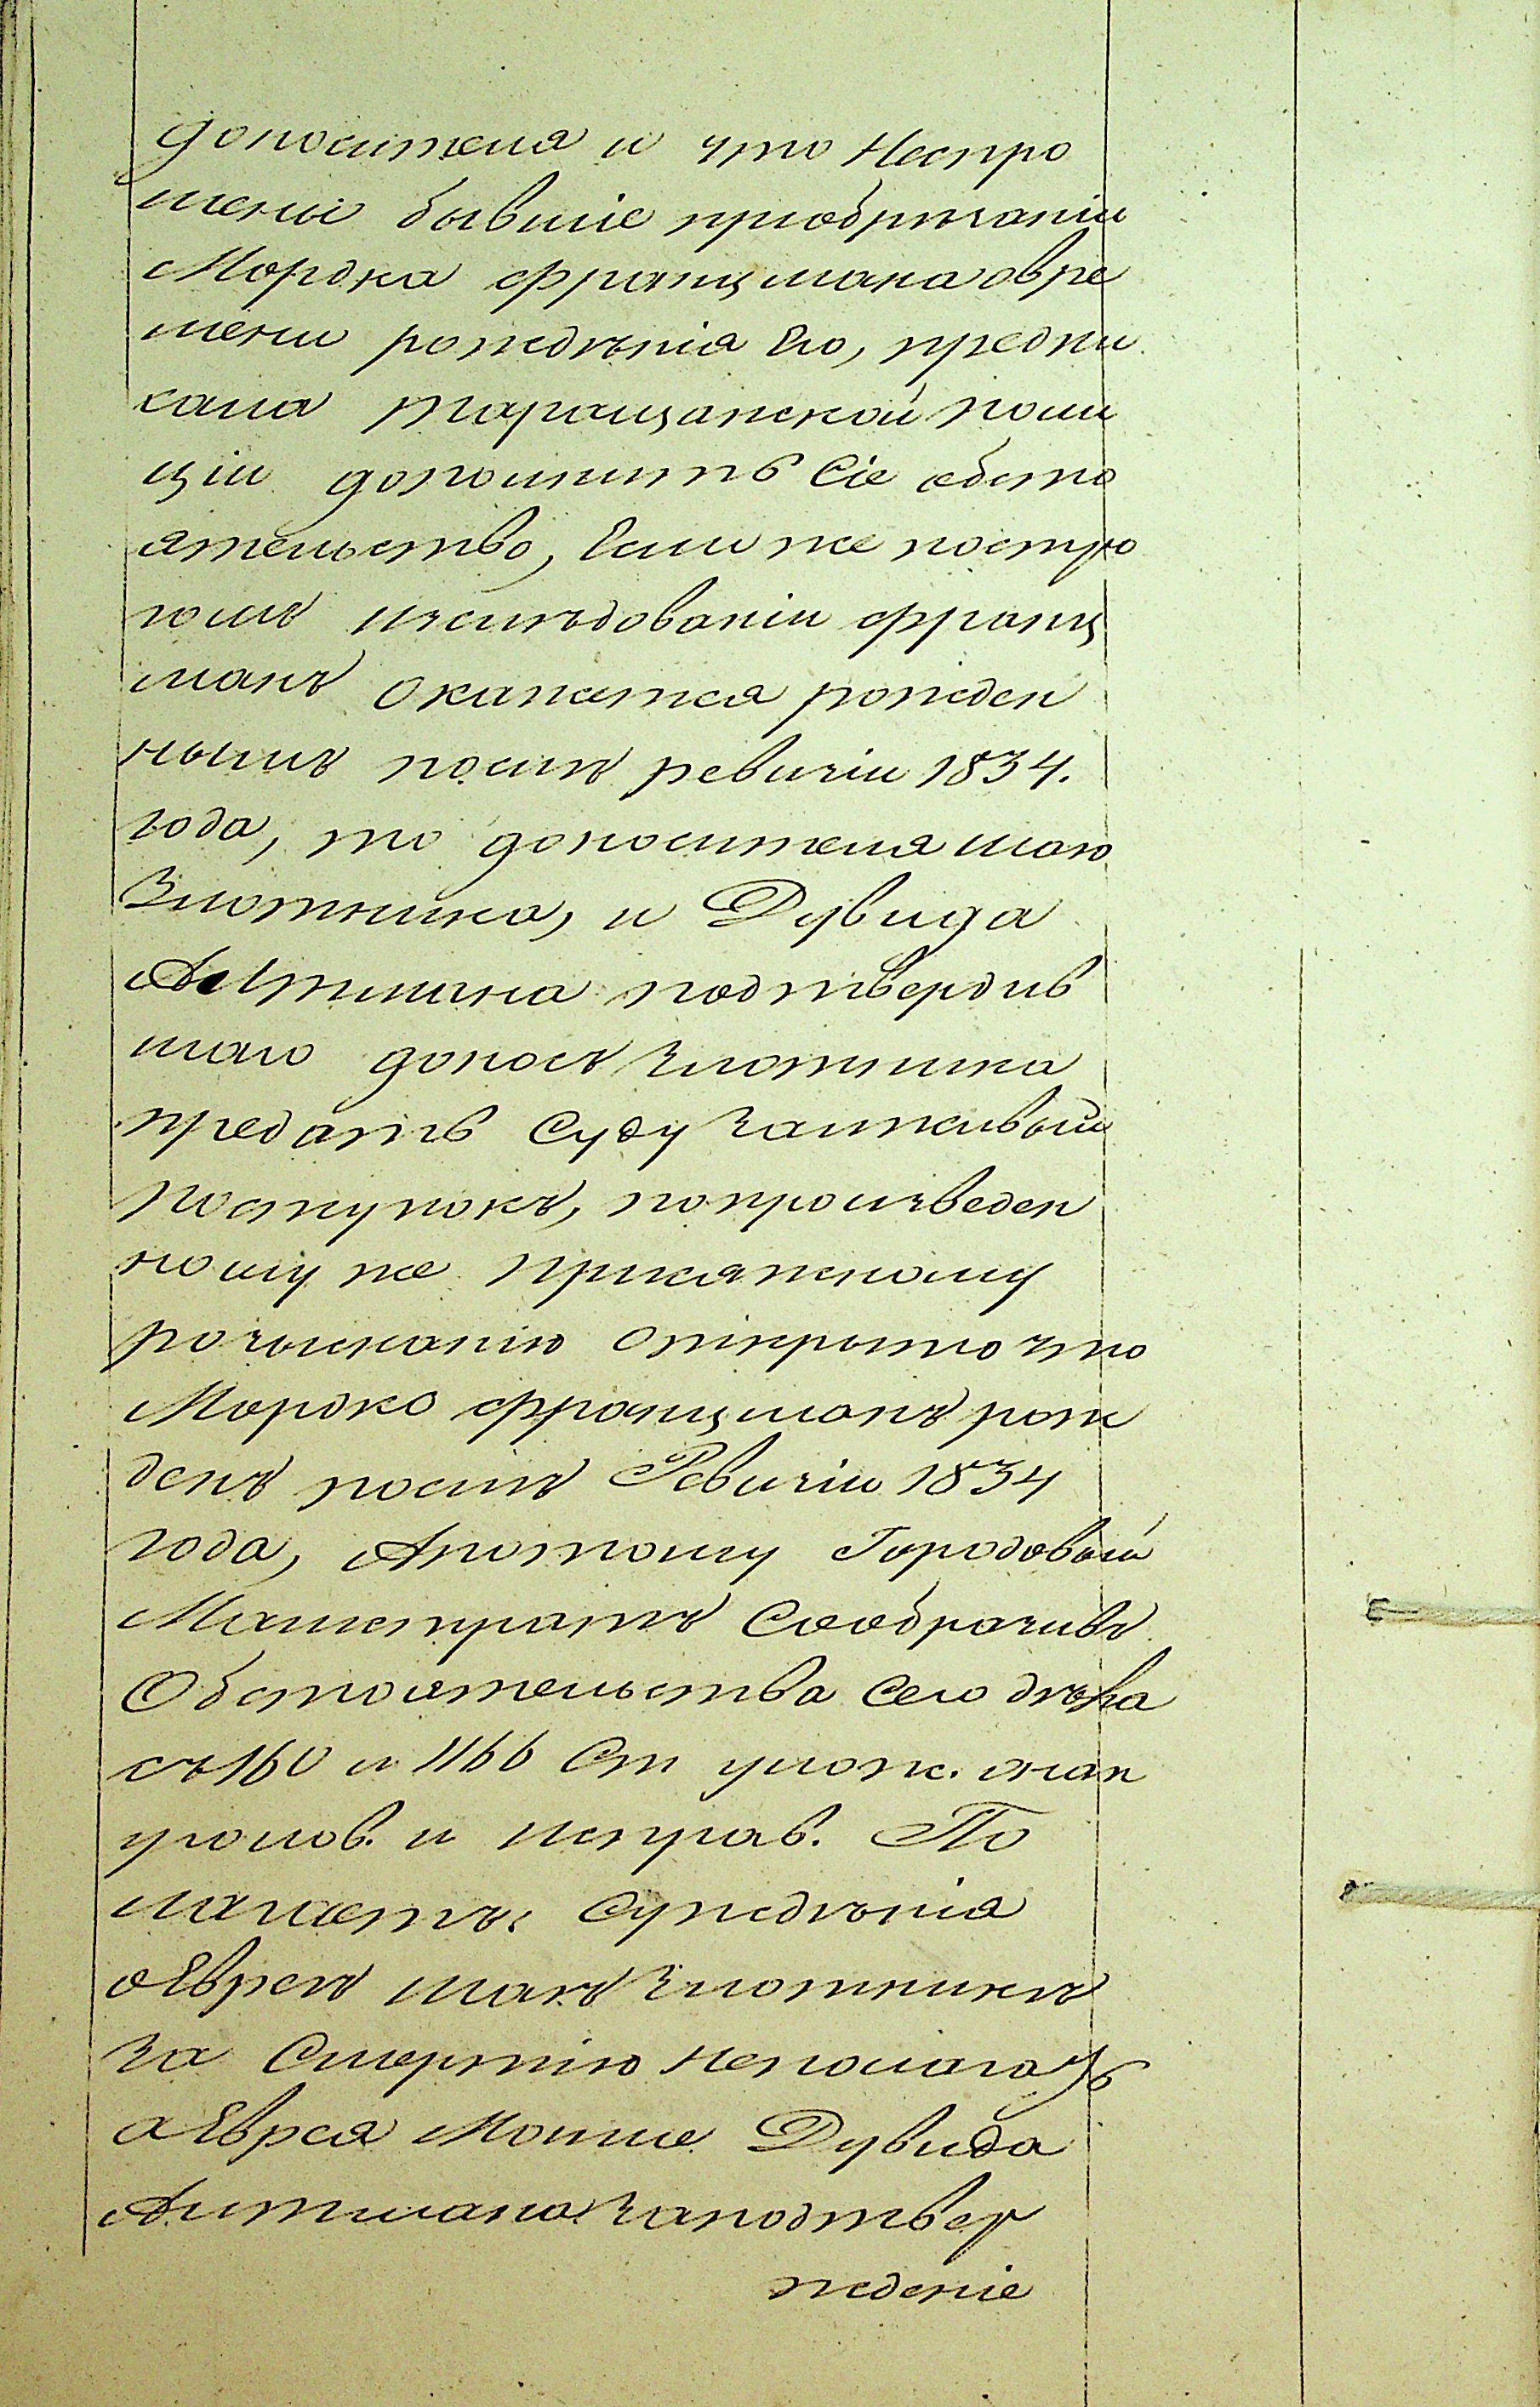 доносителя и что Неспро
шены бывшіе приобрѣзаніи
Мордка Францмана овре
мени рожденія Его, предпи
сала Таращанской поли
ціи дополнить Сіе обсто
ятельство, Если же постро
гомъ изслѣдованіи Франц
манъ окажется рожден
нымъ послѣ ревизіи 1834.
года, то доносителя Шаю
Злотника, и Дувида
Альтмана подтвердив
шаго доносъ Злотника
предать Суду залживый
поступокъ, попроизведен
ному же присяжному
розысканію открыто что
Мордко Францманъ рож
денъ послѣ Ревизіи 1834
года, Апотому Городовый
Магистратъ Сообразивъ
Обстоятельства Сего дѣла
съ 160 и 1166 Ст улож. онак
уголов. и исправ. По
лагаетъ: Сужденія
оЕвреѣ Шаѣ Злотникѣ
за Смертію Неполагать
аЕврея Мошие Дувида
Альтмана заподтвер
жденіе